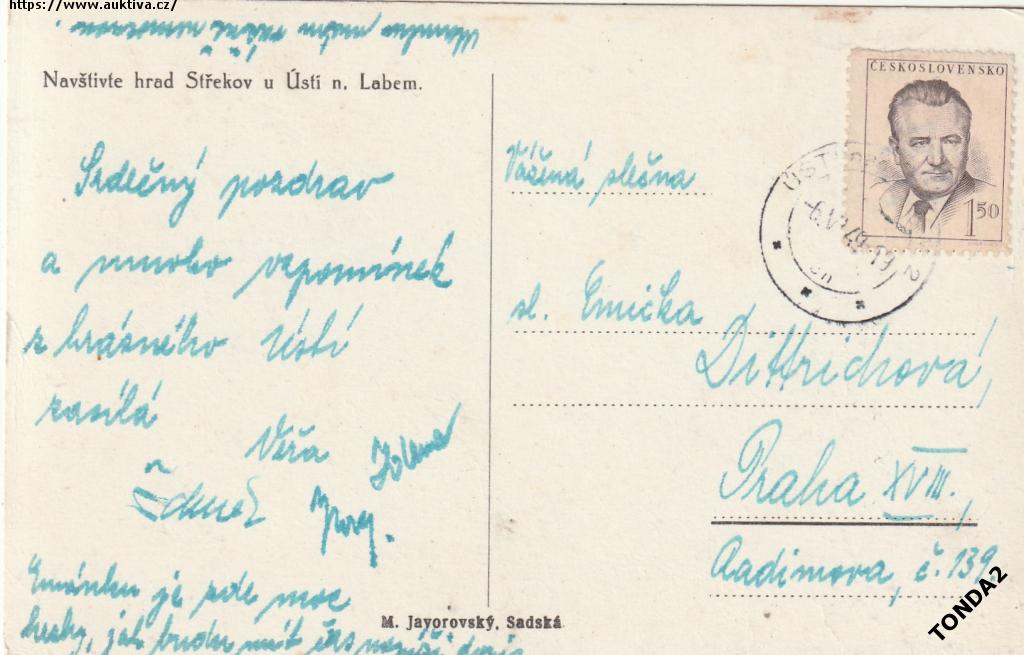 https://www.auktiva.cz/
Navštivte hrad Střekov u Ústí n. Labem.
Srdečný pozdrav
a mnoho vzpomínek
z krásného Ústí
zasílá
Věra
Zdeněk
Jolana
Emánku je zde moc
hezky, jak budu mít čas
M. Javorovský, Sadská
ČESKOSLOVENSKO
1 50
Vážená slečna
sl. Emička
Dittrichová,
Praha XVIII.,
Radimova, č. 139
TONDA2